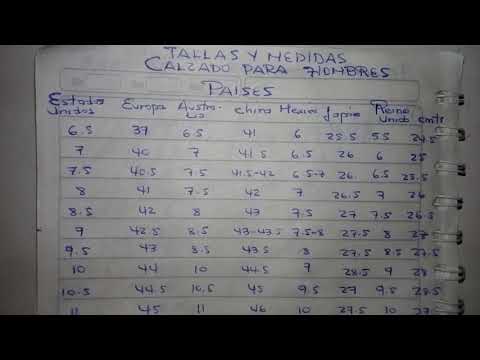 TALLAS Y MEDIDAS
CALZADO PARA HOMBRES
PAISES
Estados Unidos Europa Austra-lia china Mexico Japón Reino unido cmts
6.5 39 6.5 41 6 25.5 5.5 24.5
7 40 7 41.5 6.5 26 6 25
7.5 40.5 7.5 41.5-42 6.5-7 26. 6.5 25.5
8 41 7.5 42 7 26.5 7 26
8.5 42 8 43 7.5 27 7.5 26.5
9 42.5 8.5 43-43.5 7.5-8 27.5 8 27
9.5 43 8.5 43.5 8 27.5 8.5 27.5
10 44 10 44.5 9 28.5 9 28
10.5 44.5 10.5 45 9.5 27 9.5 28.5
11 45 11 46 10 27.5 10 27